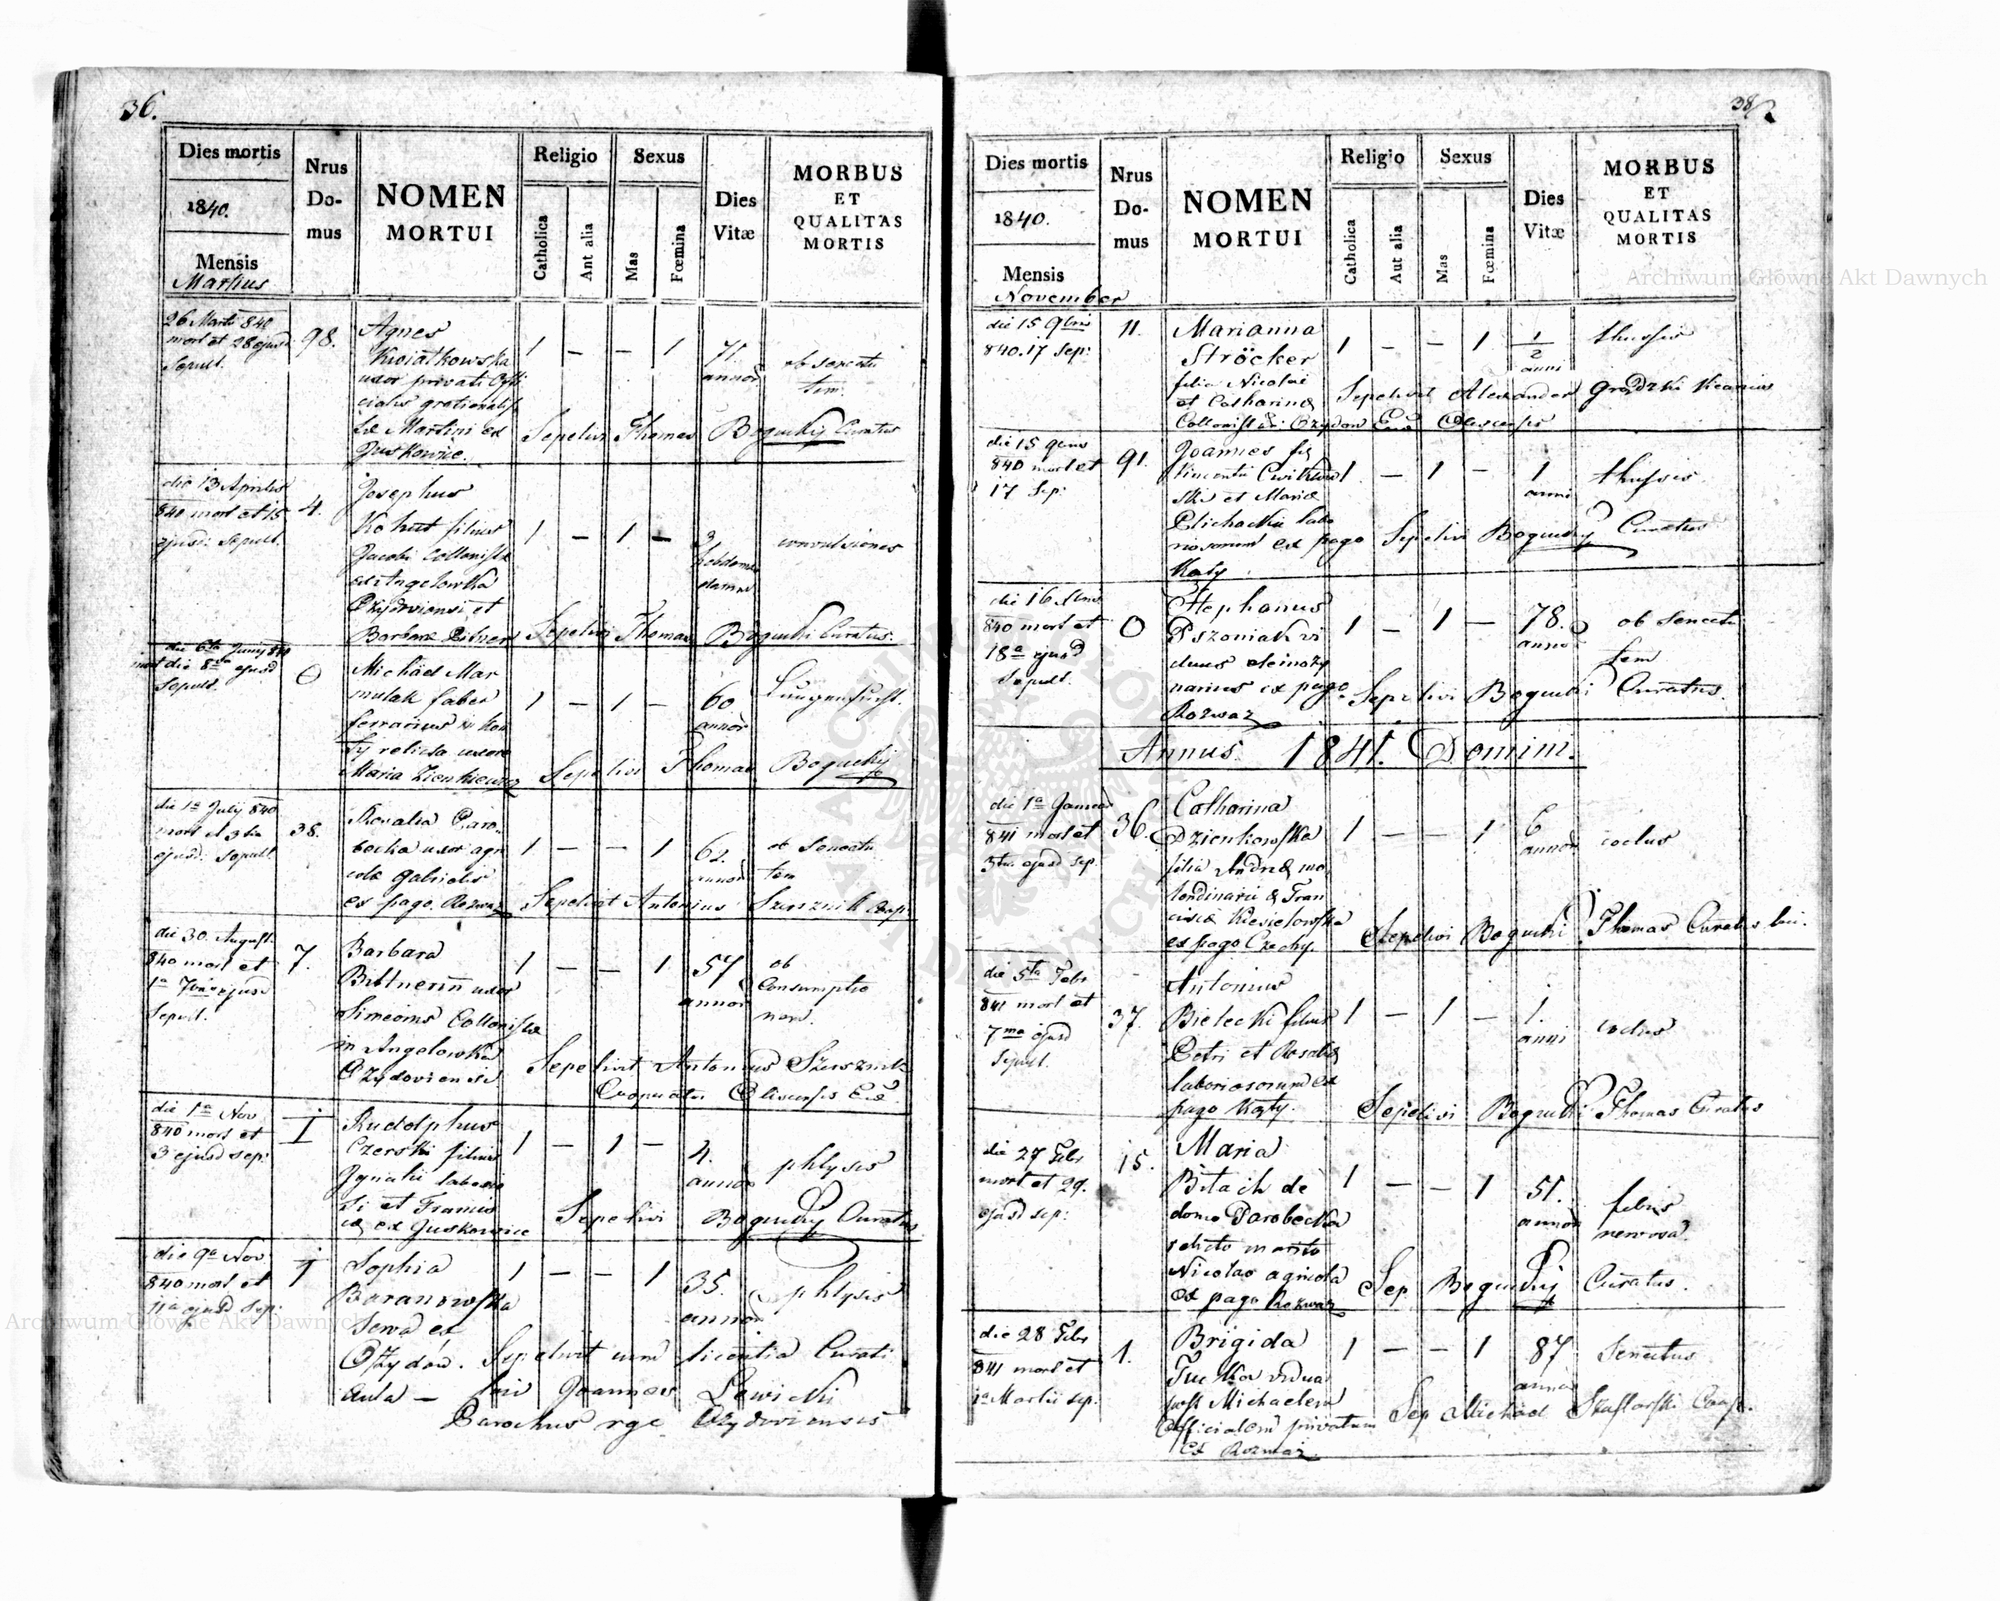 36.
Dies mortis
1840.
Mensis
Martius
Nrus
Do-
mus
NOMEN
MORTUI
Religio
Catholica
Ant alia
Sexus
Mas
Fœmina
Dies
Vitæ
MORBUS
ET
QUALITAS
MORTIS
26 Martii 840
mort et 28 ejusd
Sepult.
98.
Agnes
Kwiatkowska
uxor privati Offi
cialis
Martini ex
Juskowice.
1 — — 1
71.
annor
ob senectu
tem.
Sepelivi Thomas Bogucky Curatus
die 13 Aprilis
840 mort et 15
ejusd: Sepult.
4.
Josephus
Kohut filius
Jacobi Collonistæ
ex Angelowka
Ozydoviensi et
Barbara
1 — 1 —
3
hebdoma
darum
convulsiones
Sepelivi Thomas Bogucki Curatus.
die 6ta Junij 840
mort die 8va ejusd
Sepult.
0
Michäel Mar
mulak faber
ferrarius
relicta uxore
Maria Zienkiewicz
1 — 1 —
60
annor
Lungensucht.
Sepelivi Thomas Bogucky
die 1a July 840
mort et 3tia
ejusd: Sepult.
38.
Rosalia Paro
becka uxor agri
colæ Gabrielis
ex pago Rozwaz
1 — — 1
62.
annor
ob Senectu
tem
Sepelivit Antonius Szersznik Coop:
die 30. August.
840 mort et
1a 7bris ejusd
Sepult.
7.
Barbara
Bittnerin uxor
Simeonis Collonistæ
in Angelowka
Ozydoviensi
1 — — 1
57
annor
ob
Consumptio
nem.
Sepelivit Antonius Szersznik
Cooperator Olescensis
die 1a Nov
840 mort et
3 ejusd sep:
I
Rudolphus
Czerski filius
Ignatii laborio
si et Francis
cæ ex Juskowice
1 — 1 —
4.
annor
phtysis
Sepelivi Bogucky Curatus
die 9a Nov
840 mort et
11a ejusd Sep:
I
Sophia
Baranowska
Serva ex
Ozydow.
Aula —
1 — — 1
35.
annor
phtysis
Sepelivit cum licentia Curati
loci Joannes Lewicki
Parochus rgc Ozydoviensis
38
Dies mortis
1840.
Mensis
November
Nrus
Do-
mus
NOMEN
MORTUI
Religio
Catholica
Aut alia
Sexus
Mas
Fœmina
Dies
Vitæ
MORBUS
ET
QUALITAS
MORTIS
die 15 9bris
840. 17 Sep:
11.
Marianna
Ströcker
filia Nicolai
et Catharinæ
Collonist: Ozydow
1 — — 1
1/2
anni
thussis
Sepelivit Alexander Grodzki Vicarius
Olescensis
die 15 9bris
840 mort et
17 Sep:
91.
Joannes fil
Vincentii Cwitkow
ski et Mariæ
Plichackii labo
riosorum ex pago
Katy
1 — 1 —
1
anni
thussis
Sepelivi Bogucky Curatus
die 16
840 mort et
18a ejusd
Sepult.
0
Stephanus
Pszoniak vi
duus eleimozy
narius ex pago
Rozwaz
1 — 1 —
78.
annor
ob Senectu
tem
Sepelivi Bogucki Curatus.
Annus 1841. Domini.
die 1a Januar
841 mort et
3tia ejusd sep.
36.
Catharina
Dzienkowska
filia Andreæ mo
lendinarii & Fran
ciscæ Kisielowska
ex pago Czechy.
1 — — 1
6
annor
coclus
Sepelivi Bogucki Thomas Curatus loci.
die 5ta Febr
841 mort et
7ma ejusd
Sepult.
37.
Antonius
Bielecki filius
Petri et Rosaliæ
laboriosorum ex
pago Katy.
1 — 1 —
1.
anni
coclus
Sepelivi Bogucki Thomas Curatus
die 27 Febr
mort et 29.
ejusd sep:
15.
Maria
Bitach de
domo Parobecka
relicto marito
Nicolao agricola
ex pago Rozwaz
1 — — 1
51.
annor
febris
nervosa.
Sep. Bogucky Curatus.
die 28 Febr
841 mort et
1a Martii sep.
1.
Brigida
Tucka vidua
post Michaelem
Officialem privatum
ex Rozwaz
1 — — 1
87
annor
Senectus
Sep Michäel Skaflarski Coop.
Archiwum Główne Akt Dawnych
Archiwum Główne Akt Dawnych